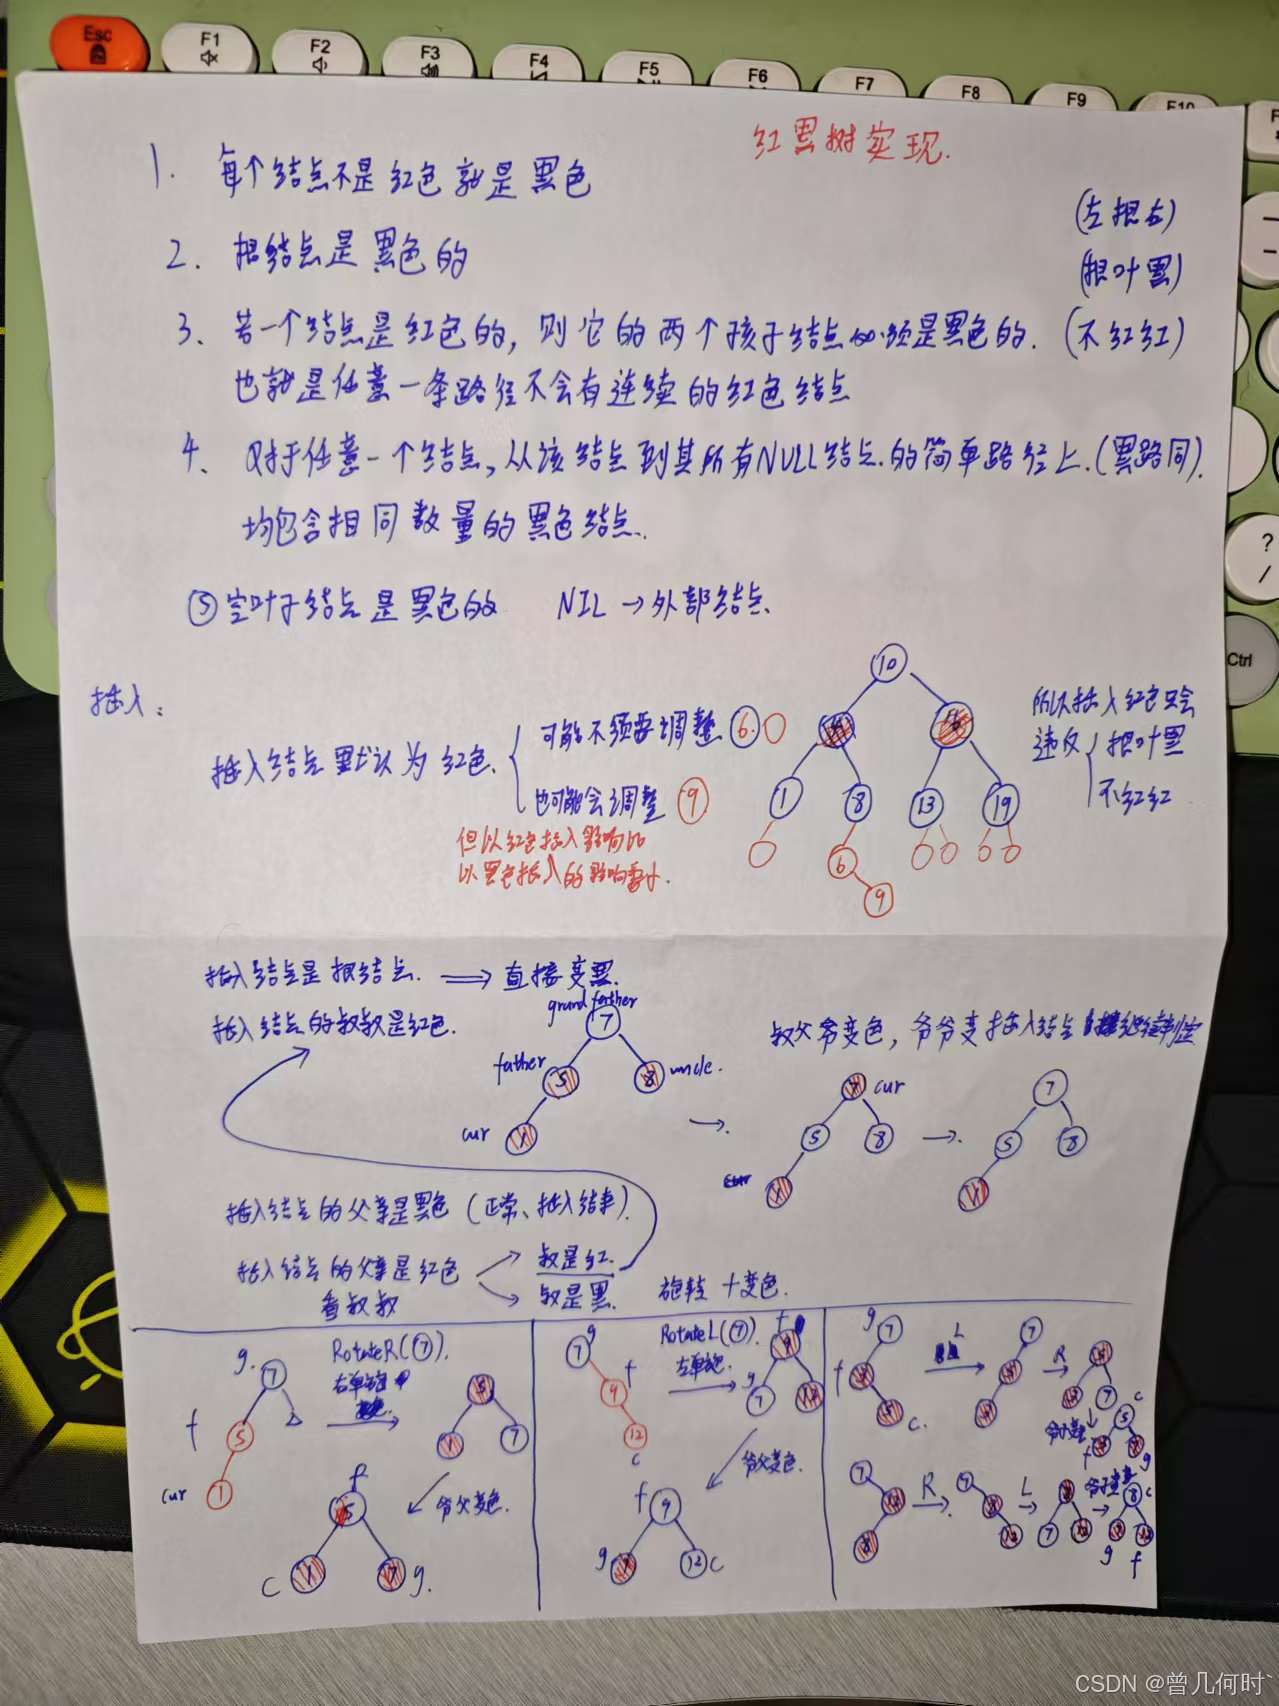 Esc
F1
F2
F3
F4
F5
F6
F7
F8
F9
F10
红黑树实现.
1. 每个结点不是红色就是黑色
(左根右)
2. 根结点是黑色的
(根叶黑)
3、若一个结点是红色的,则它的两个孩子结点必须是黑色的. (不红红)
也就是任意一条路径不会有连续的红色结点
4、对于任意一个结点,从该结点到其所有NULL结点.的简单路径上.(黑路同).
均包含相同数量的黑色结点.
? /
⑤空叶子结点是黑色的 NIL → 外部结点.
Ctrl
插入:
插入结点默认为红色.
可能不须要调整 6.
也可能会调整 9
但以红色插入影响比
以黑色插入的影响要小.
10
1 8 13 19
6
9
所以插入红色只会
违反 根叶黑
不红红
插入结点是根结点. ⟹ 直接变黑.
插入结点的叔叔是红色.
grandfather
7
father 5 8 uncle.
cur 1
→.
叔父爷变色,爷爷变插入结点继续判定
7 cur
5 8
1
→.
7
5 8
1
插入结点的父亲是黑色(正常、插入结束).
插入结点的父亲是红色
看叔叔
叔是红.
叔是黑. 旋转+变色.
g. 7
f 5
cur 1
RotateR(7).
右单旋
5
1 7
爷父变色.
f
5
c 1 7 g.
g
7 f
9
12
c
RotateL(7).
左单旋.
f
9
g 7 12
爷父变色.
f 9
g 7 12 c
g 7
f
5 c.
L
7
R
5
7
c
5
f g
7
8
R
7
8
12
L
8
7 12
8 c
7 12
g f
CSDN @曾几何时`